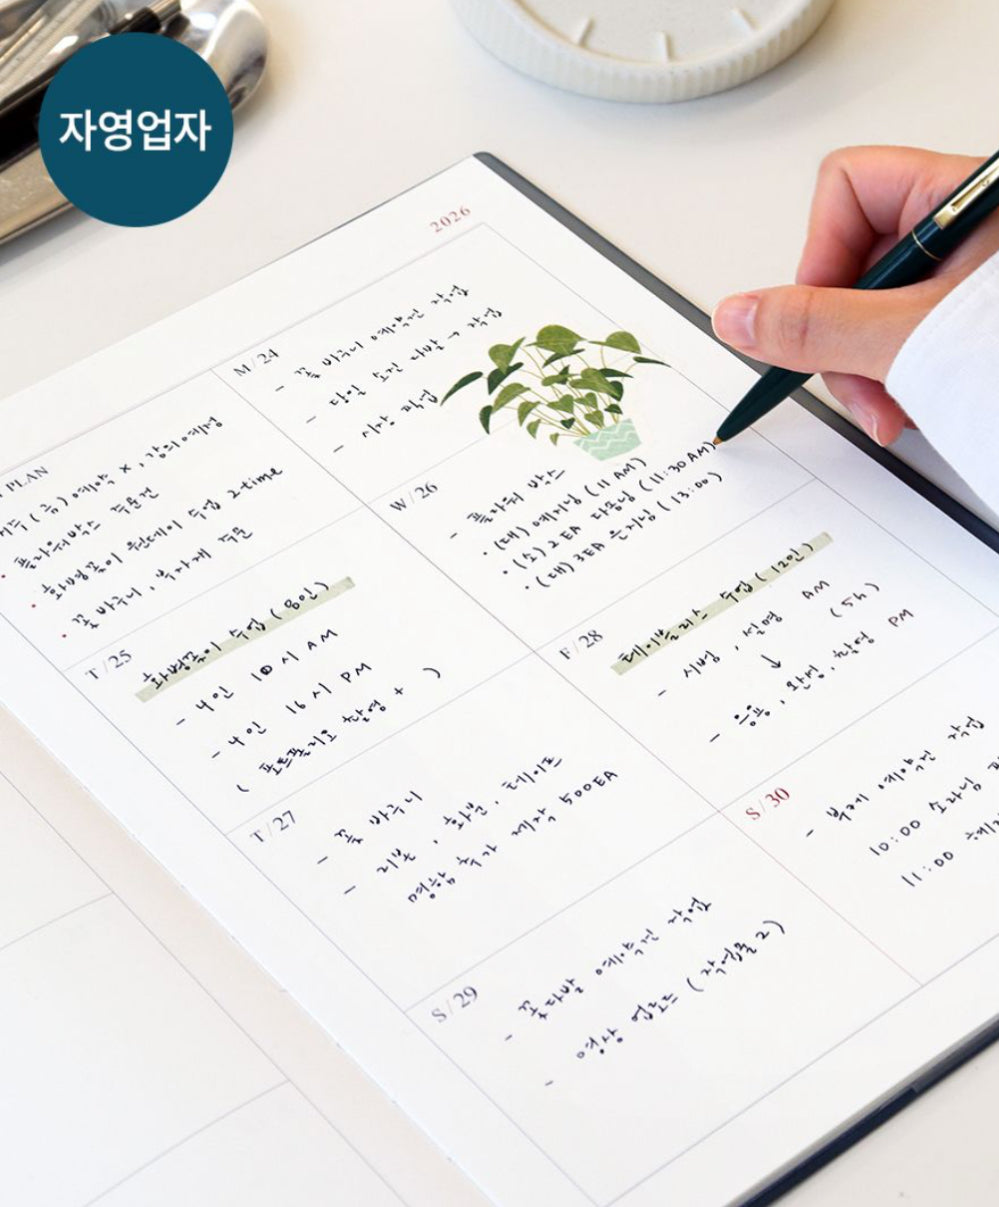 자영업자
2026
PLAN
(주) 예약 x, 강의예정
• 플라워박스 주문건
• 화병꽂이 원데이 수업 2-time
• 꽃바구니, 부자재 주문
M/24
- 꽃 바구니 예약건 작업
- 당일 오전 다발 → 작업
- 시장
T/25
화병꽂이 수업 (8인)
- 4인 10시 AM
- 4인 16시 PM
( 포트폴리오 촬영 + )
W/26
- 플라워 박스
• (대) 예지님 (11AM)
• (소) 2EA 다움님 (11:30AM)
• (대) 3EA 은지님 (13:00)
T/27
- 꽃 바구니
- 리본, 화분, 테이프
명함 추가 제작 500EA
F/28
테이블 리스 수업 (12인)
- 시범, 설명 AM
↓ (5h)
- 응용, 완성, 촬영 PM
S/29
- 꽃다발 예약건 작업
- 영상 업로드 (작업물 2)
S/30
- 부케 예약건 작업
10:00
11:00